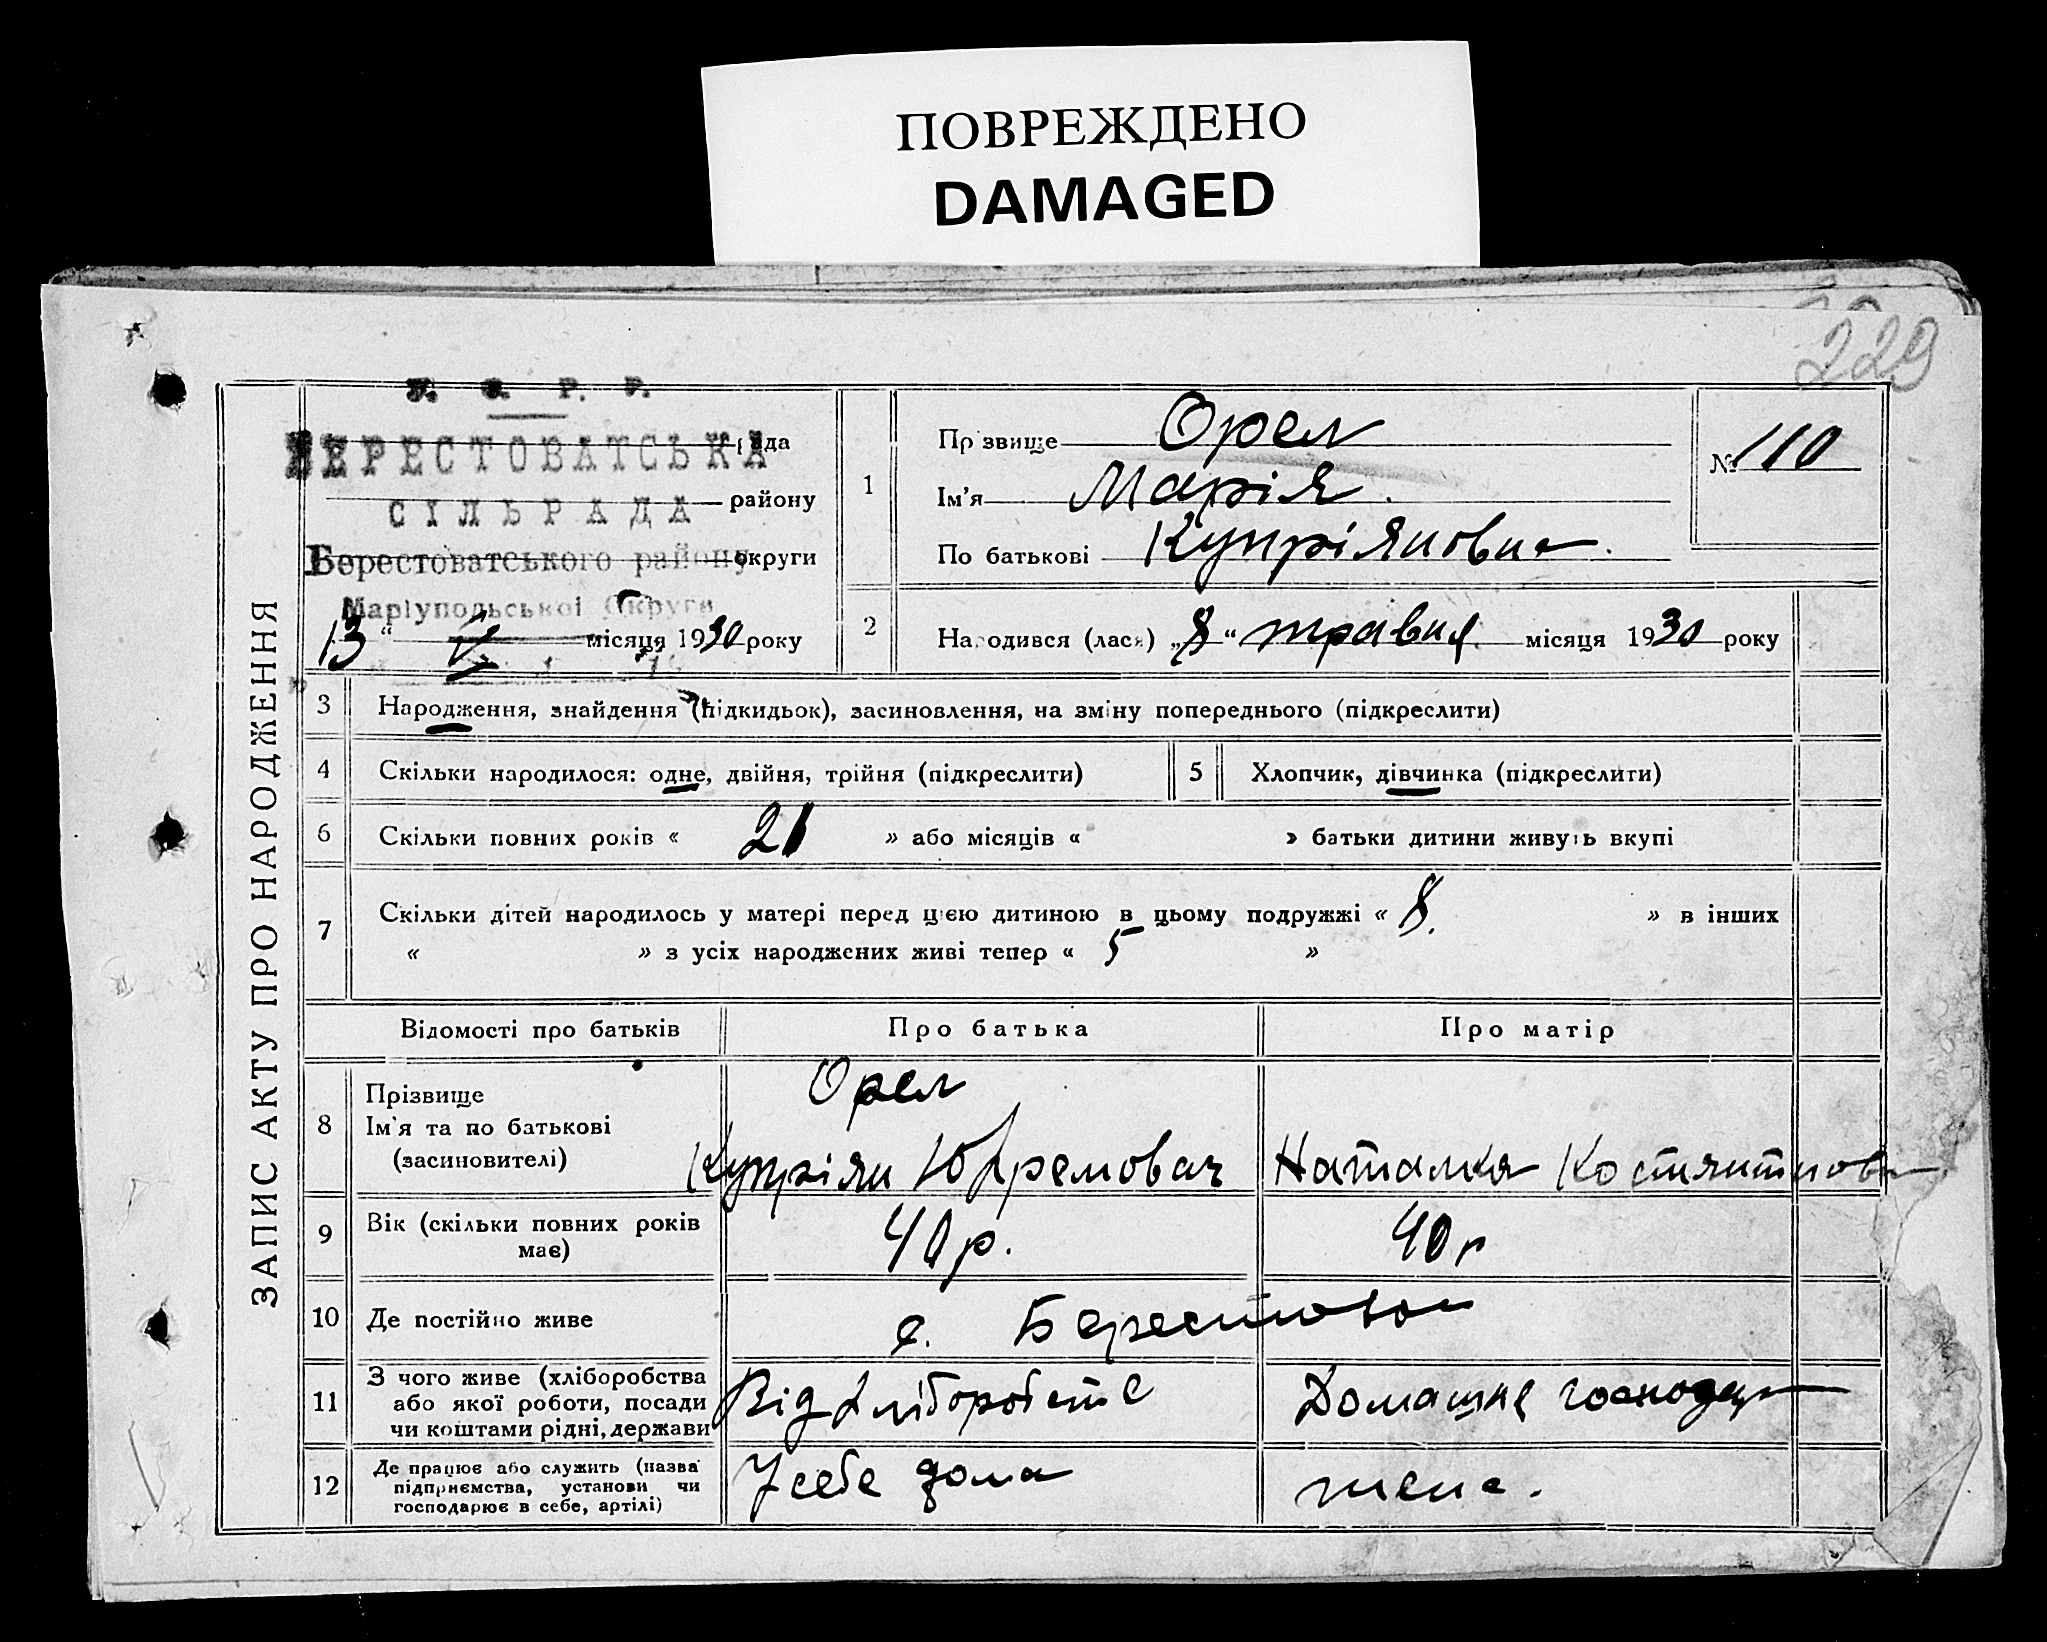 ПОВРЕЖДЕНО
DAMAGED
229
У. С. Р. Р.
БЕРЕСТОВАТСЬКА рада
СІЛЬРАДА району
Берестоватського району округи
Маріупольської Округи
13 “ V місяця 1930 року
ЗАПИС АКТУ ПРО НАРОДЖЕННЯ
1
Прізвище Орел
Ім'я Марія.
По батькові Купріяновна.
№ 110
2 Народився (лася) „8“ травня місяця 1930 року
3 Народження, знайдення (підкидьок), засиновлення, на зміну попереднього (підкреслити)
4 Скільки народилося: одне, двійня, трійня (підкреслити) 5 Хлопчик, дівчинка (підкреслити)
6 Скільки повних років « 21 » або місяців « » батьки дитини живуть вкупі
7 Скільки дітей народилось у матері перед цією дитиною в цьому подружжі « 8. » в інших
« » з усіх народжених живі тепер « 5 »
Відомості про батьків Про батька Про матір
8 Прізвище
Ім'я та по батькові
(засиновителі)
Орел
Купріян Юхремович Наталка Костянтинов
9 Вік (скільки повних років має) 40 р. 40 р
10 Де постійно живе с. Берестове
11 З чого живе (хліборобства
або якої роботи, посади
чи коштами рідні, держави
Від хліборобств Домашнє господар
12 Де працює або служить (назва
підприємства, установи чи
господарює в себе, артілі)
У себе дома